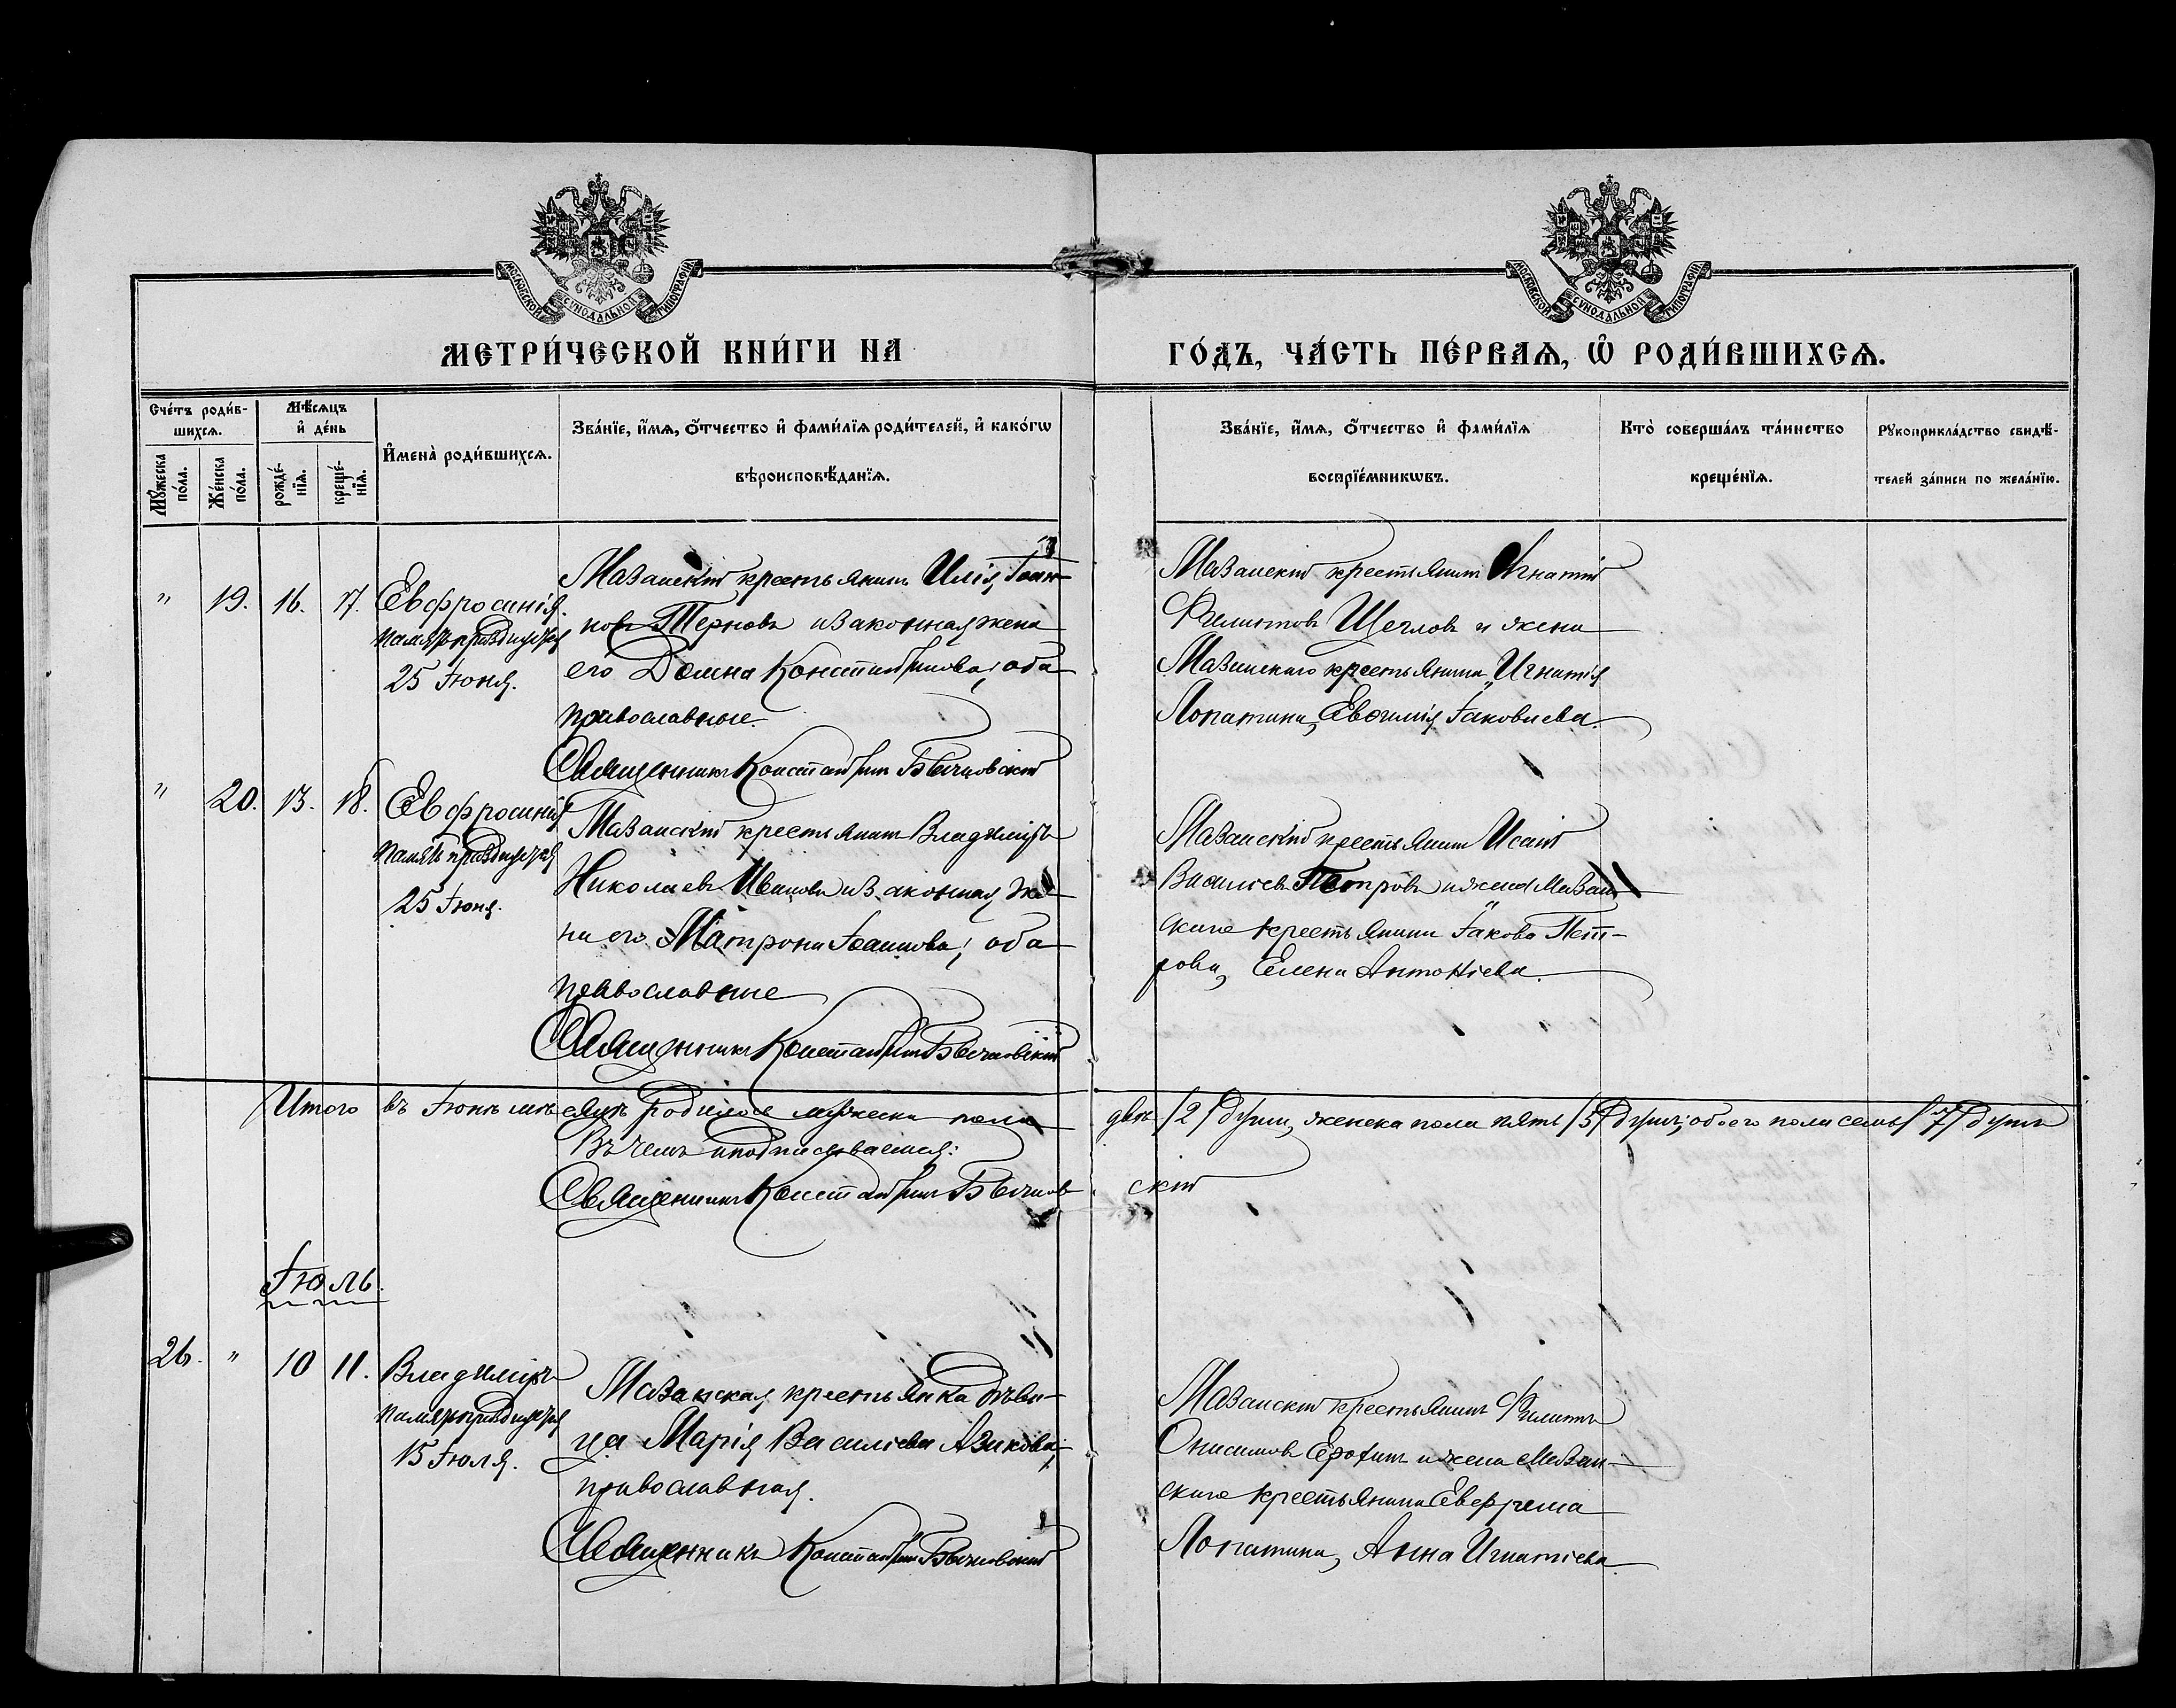 МОСКОВСКОЙ СУНОДАЛЬНОЙ ТИПОГРАФІИ
МОСКОВСКОЙ СУНОДАЛЬНОЙ ТИПОГРАФІИ
МЕТРИ́ЧЕСКОЙ КНИ́ГИ НА ГО́ДЪ, ЧА́СТЬ ПЕ́РВАѦ, Ѽ РОДИ́ВШИХСѦ.
Сче́тъ роди́в-
шихсѧ.
Мꙋ́жеска по́ла.
Же́нска по́ла.
Мѣ́сѧцъ
и҆ де́нь
рожде́-
нїѧ.
креще́-
нїѧ.
И҆мена̀ роди́вшихсѧ.
Зва́нїе, и҆́мѧ, ѻ҆́тчество и҆ фами́лїѧ роди́телей, и҆ како́гѡ
вѣроисповѣ́данїѧ.
Зва́нїе, и҆́мѧ, ѻ҆́тчество и҆ фами́лїѧ
воспрїе́мникѡвъ.
Кто̀ соверша́лъ та́инство
креще́нїѧ.
Рꙋкоприкла́дство свидѣ́-
телей за́писи по жела́нїю.
" 19. 16. 17. Евфросинія.
память празднуется
25 Іюня.
Мазанскій крестьянинъ Илія Іоан-
новъ Терновъ и законная жена
его Домна Константинова; оба
православные.
Священникъ Константинъ
Мазанскій крестьянинъ Игнатій
Филиповъ Щегловъ и жена
Мазанскаго крестьянина Игнатія
Лопатина, Евѳимія Іаковлева.
" 20. 13. 18. Евфросинія
память празднуется
25 Іюня.
Мазанскій крестьянинъ Владиміръ
Николаевъ Ивановъ и законная же-
на его Матрона Іоаннова; оба
православные
Священникъ Константинъ
Мазанскій крестьянинъ Исаія
Василіевъ Петровъ и жена Мазан-
скаго крестьянина Іакова Пет-
рова, Елена Антоніева.
Итого въ Іюнѣ мѣсяцѣ родилось мужеска пола двѣ /2/ души, женска пола пять /5/ душъ; обоего пола семь /7/ душъ
Въ чемъ и подписываемся:
Священникъ Константинъ
Іюль.
26. " 10 11. Владиміръ
память празднуется
15 Іюля.
Мазанская крестьянка дѣви-
ца Марія Василіева Азикова;
православная.
Священникъ Константинъ
Мазанскій крестьянинъ Филиппъ
Онисимовъ Ерохинъ и жена Мазан-
скаго крестьянина Евфрема
Лопатина, Анна Игнатіева.